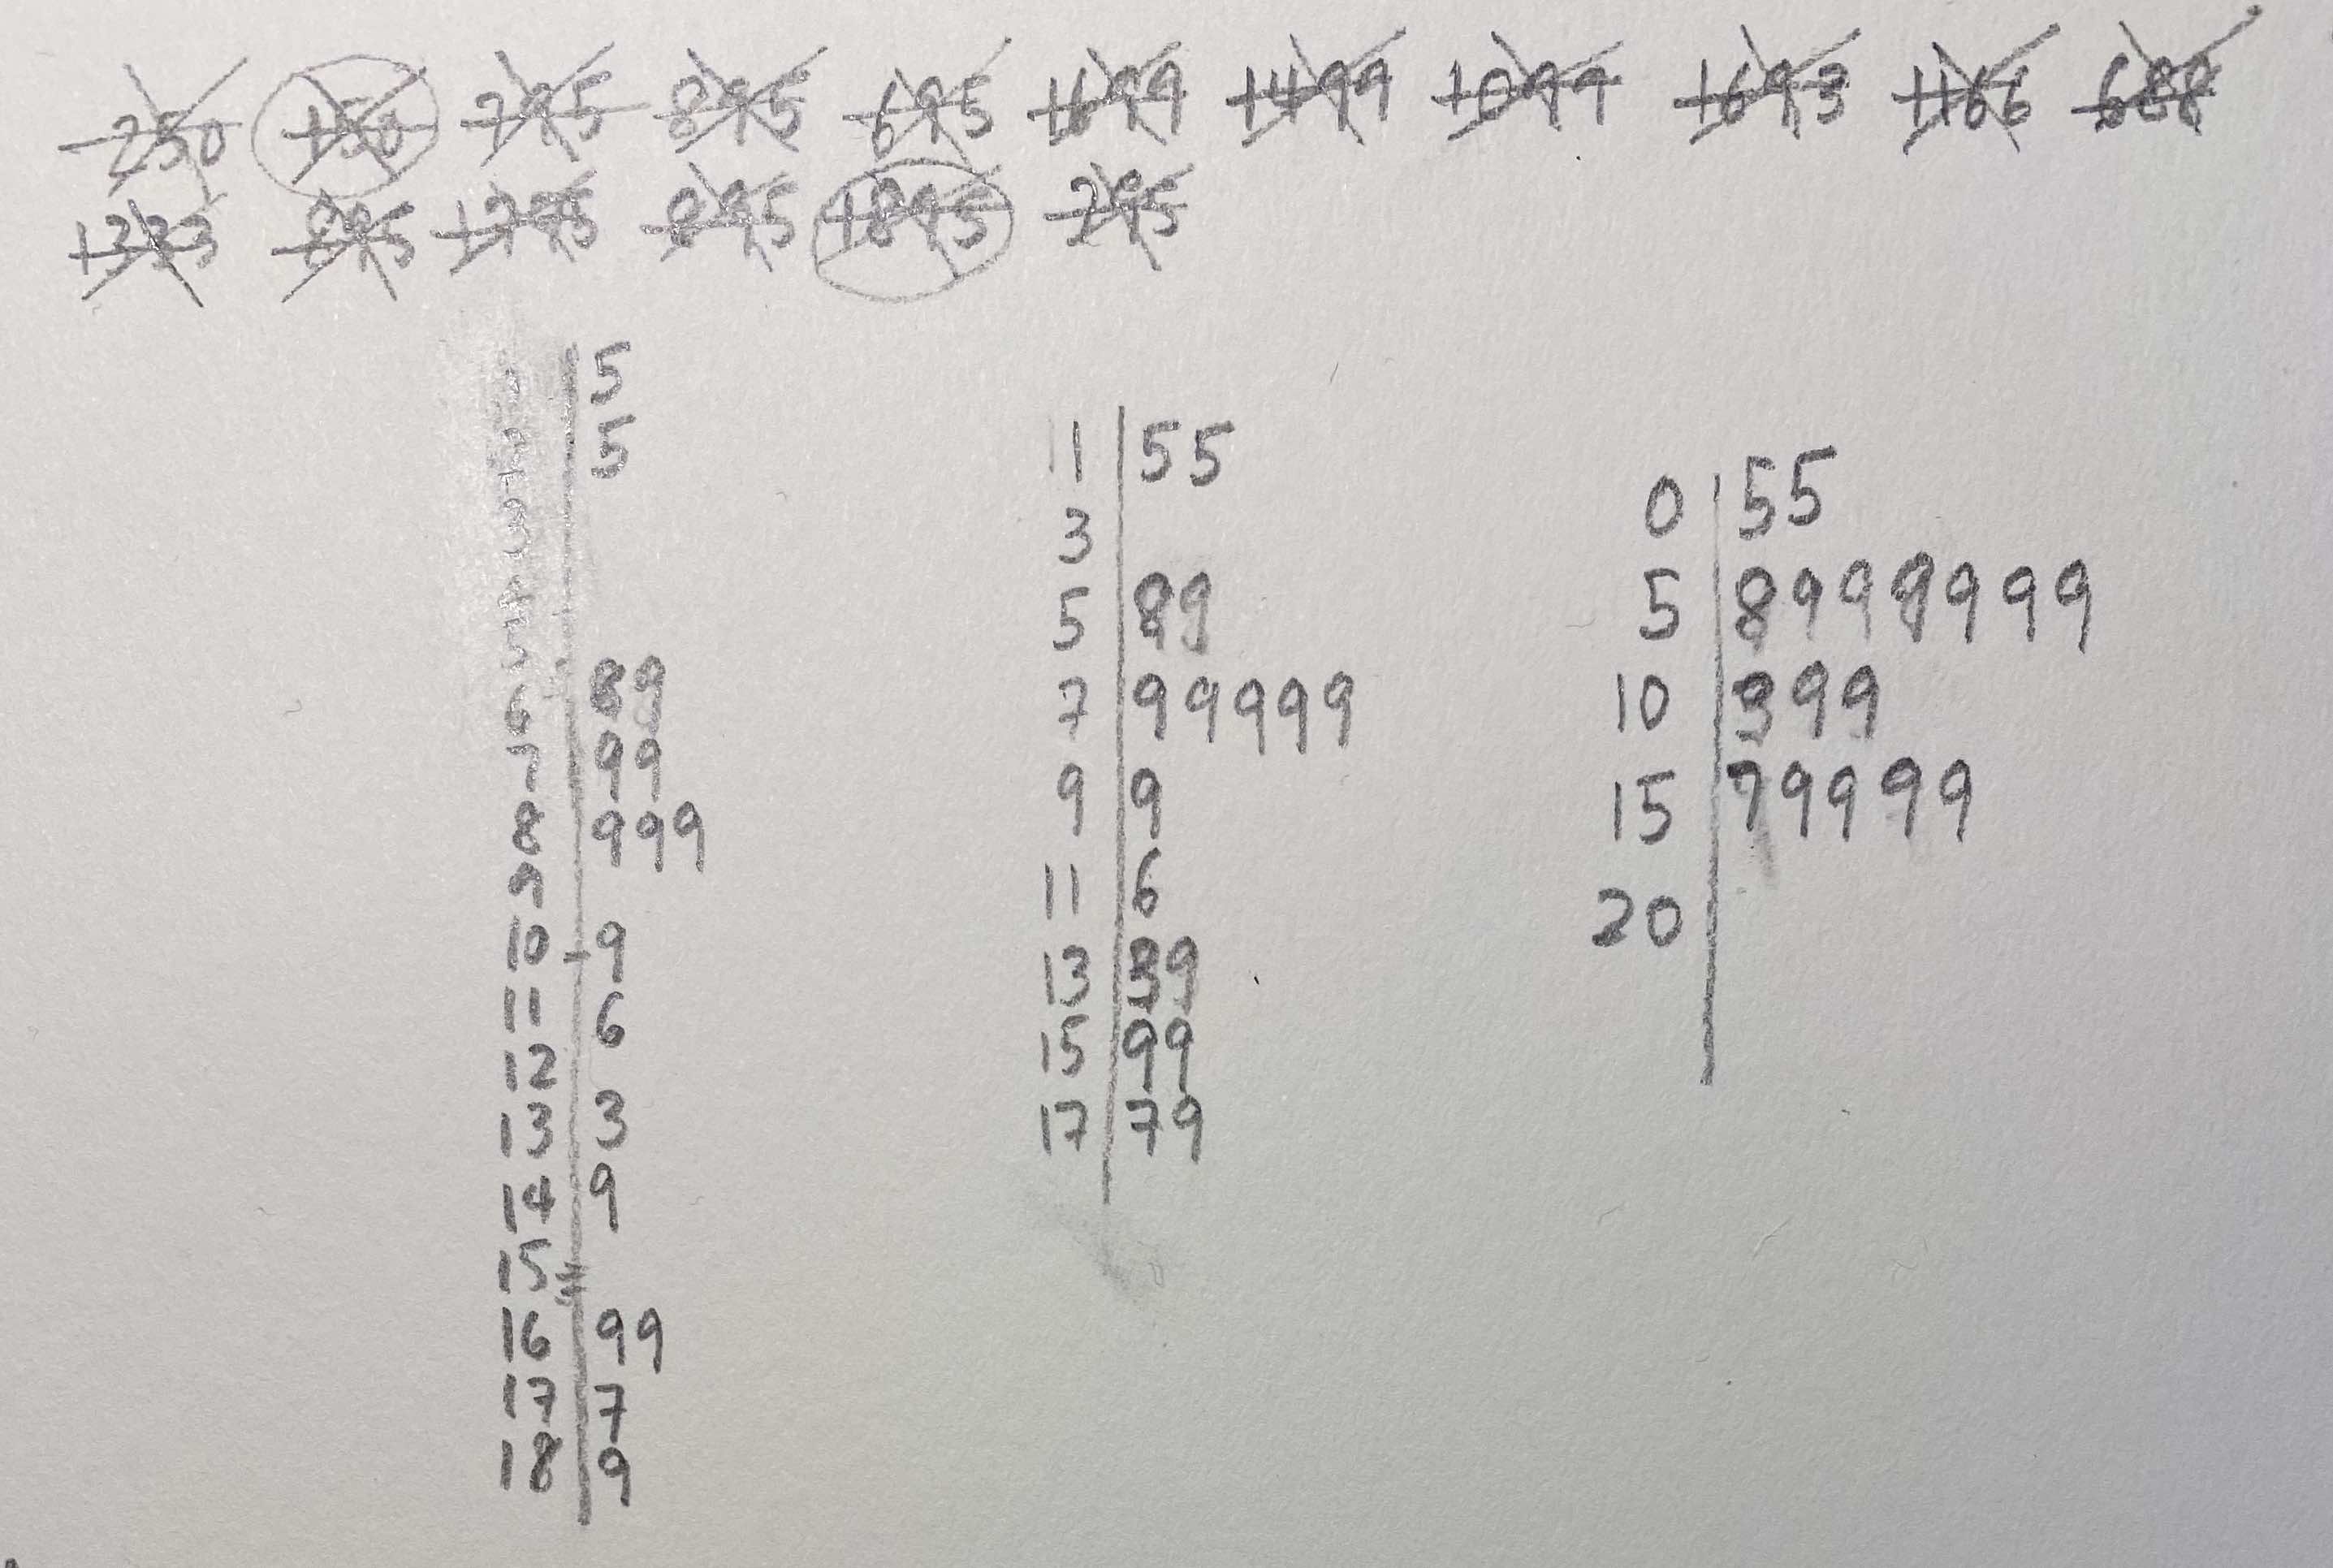 250 150 795 895 695 1699 1499 1099 1693 1166 688
1333 895 1775 895 1895 795
5
5
6 89
7 99
8 999
9
10 9
11 6
12
13 3
14 9
15
16 99
17 7
18 9
1 55
3
5 89
7 99999
9 9
11 6
13 39
15 99
17 79
0 55
5 8999999
10 399
15 79999
20